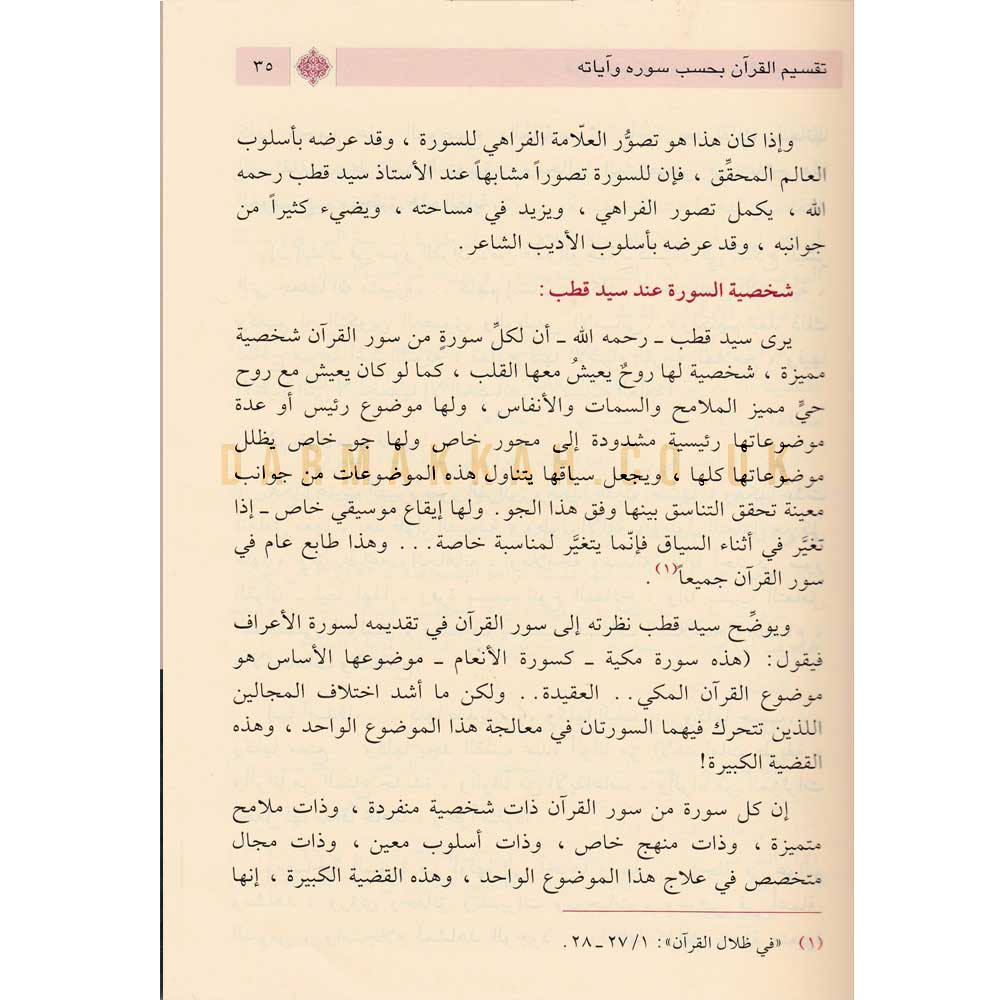 تقسيم القرآن بحسب سوره وآياته
٣٥
وإذا كان هذا هو تصوُّر العلّامة الفراهي للسورة ، وقد عرضه بأسلوب
العالم المحقِّق ، فإن للسورة تصوراً مشابهاً عند الأستاذ سيد قطب رحمه
الله ، يكمل تصور الفراهي ، ويزيد في مساحته ، ويضيء كثيراً من
جوانبه ، وقد عرضه بأسلوب الأديب الشاعر .
شخصية السورة عند سيد قطب :
يرى سيد قطب ـ رحمه الله ـ أن لكلِّ سورةٍ من سور القرآن شخصية
مميزة ، شخصية لها روحٌ يعيشُ معها القلب ، كما لو كان يعيش مع روح
حيٍّ مميز الملامح والسمات والأنفاس ، ولها موضوع رئيس أو عدة
موضوعاتها رئيسية مشدودة إلى محور خاص ولها جو خاص يظلل
موضوعاتها كلها ، ويجعل سياقها يتناول هذه الموضوعات من جوانب
معينة تحقق التناسق بينها وفق هذا الجو . ولها إيقاع موسيقي خاص ـ إذا
تغيَّر في أثناء السياق فإنّما يتغيَّر لمناسبة خاصة . . . وهذا طابع عام في
سور القرآن جميعاً(١) .
ويوضِّح سيد قطب نظرته إلى سور القرآن في تقديمه لسورة الأعراف
فيقول : (هذه سورة مكية ـ كسورة الأنعام ـ موضوعها الأساس هو
موضوع القرآن المكي . . العقيدة . . ولكن ما أشد اختلاف المجالين
اللذين تتحرك فيهما السورتان في معالجة هذا الموضوع الواحد ، وهذه
القضية الكبيرة !
إن كل سورة من سور القرآن ذات شخصية منفردة ، وذات ملامح
متميزة ، وذات منهج خاص ، وذات أسلوب معين ، وذات مجال
متخصص في علاج هذا الموضوع الواحد ، وهذه القضية الكبيرة ، إنها
(١) «في ظلال القرآن» : ١/ ٢٧ ـ ٢٨ .
DARMAKKAH.CO.UK